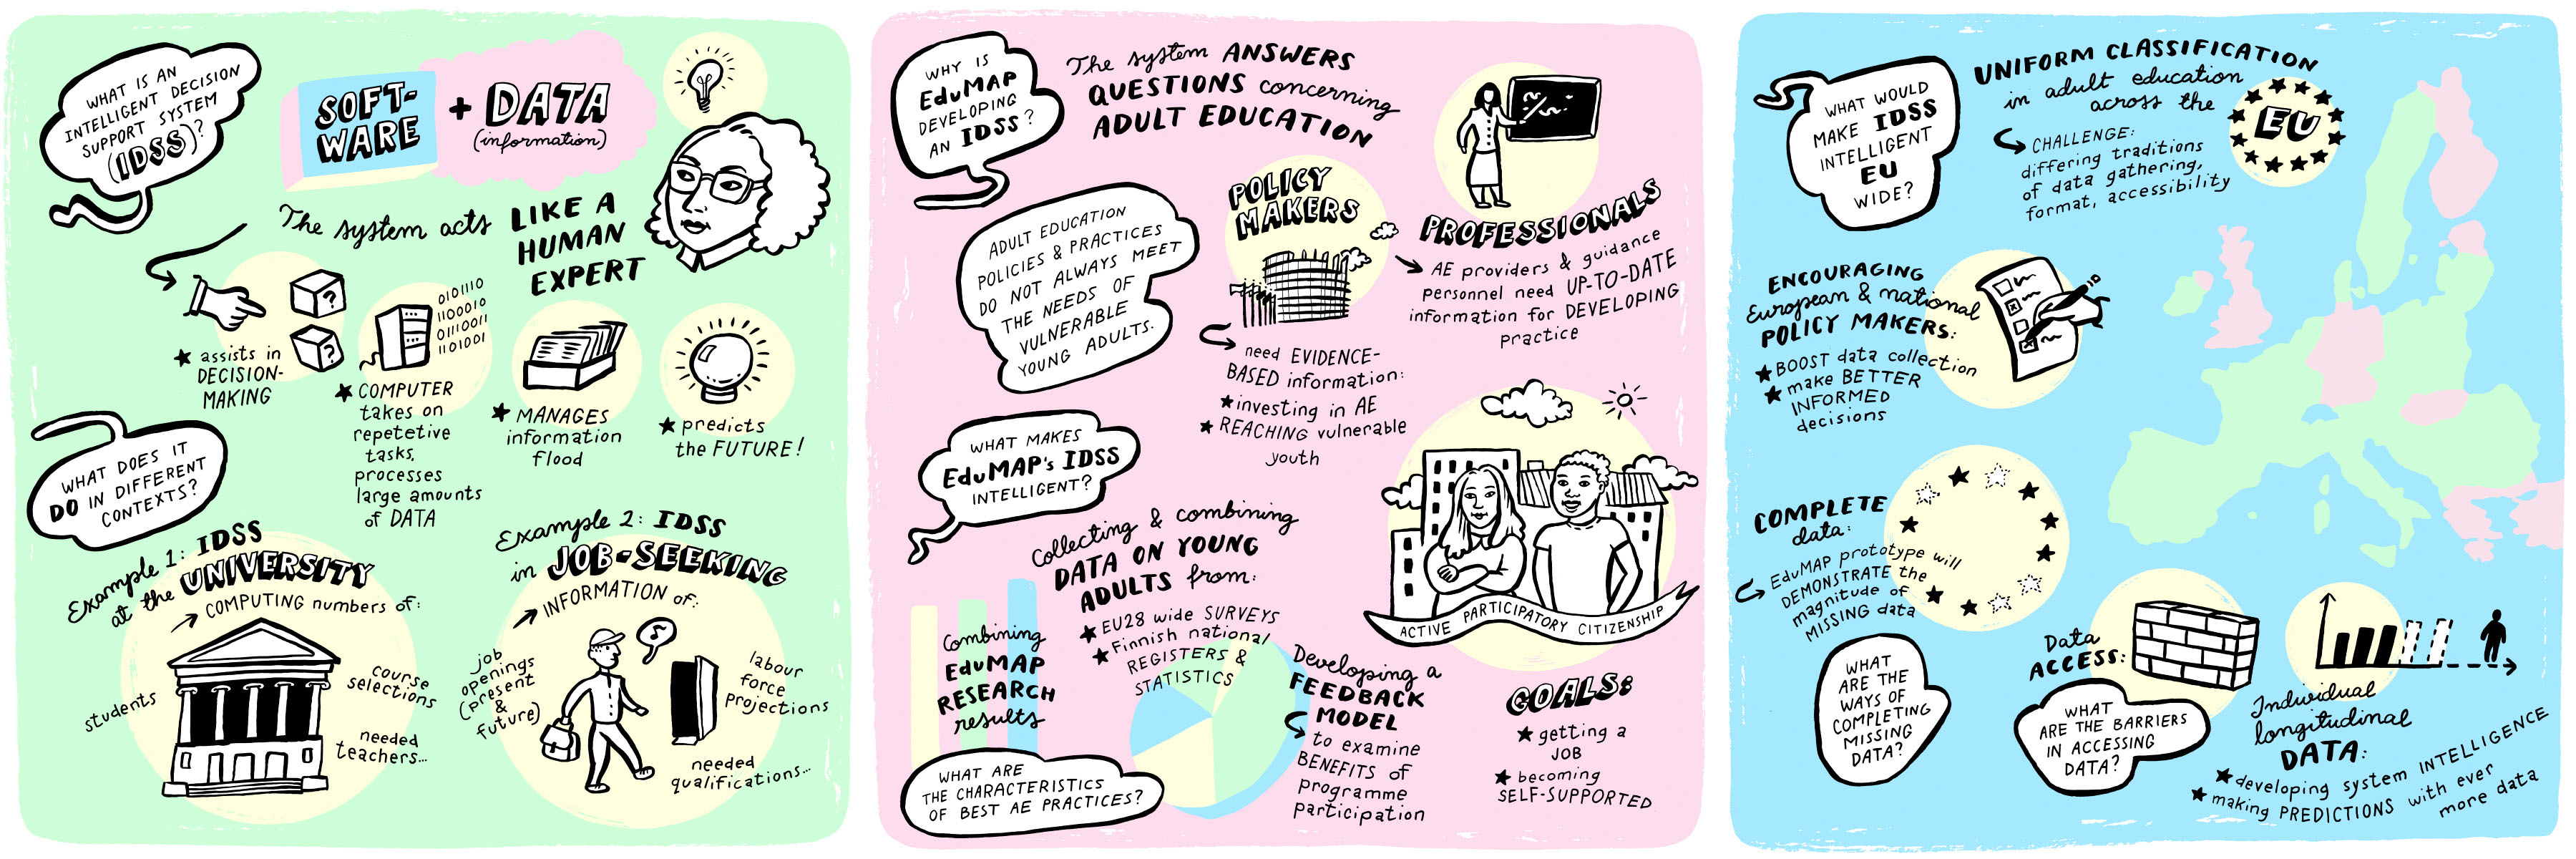 WHAT IS AN
INTELLIGENT DECISION
SUPPORT SYSTEM
(IDSS)?
SOFT-
WARE
+ DATA
(information)
The system acts
LIKE A
HUMAN
EXPERT
?
?
★ assists in
DECISION-
MAKING
0101110
1100010
01110011
1101001
★ COMPUTER
takes on
repetetive
tasks,
processes
large amounts
of DATA
★ MANAGES
information
flood
★ predicts
the FUTURE!
WHAT DOES IT
DO IN DIFFERENT
CONTEXTS?
Example 1: IDSS
at the UNIVERSITY
→ COMPUTING numbers of:
students
course
selections
needed
teachers...
Example 2: IDSS
in JOB-SEEKING
→ INFORMATION of:
job
openings
(present
&
future)
labour
force
projections
needed
qualifications...
WHY IS
EduMAP
DEVELOPING
AN IDSS?
The system ANSWERS
QUESTIONS concerning
ADULT EDUCATION
ADULT EDUCATION
POLICIES & PRACTICES
DO NOT ALWAYS MEET
THE NEEDS OF
VULNERABLE
YOUNG ADULTS.
POLICY
MAKERS
need EVIDENCE-
BASED information:
★ investing in AE
★ REACHING vulnerable
youth
PROFESSIONALS
→ AE providers & guidance
personnel need UP-TO-DATE
information for DEVELOPING
practice
WHAT MAKES
EduMAP's IDSS
INTELLIGENT?
Collecting & combining
DATA ON YOUNG
ADULTS from:
★ EU28 wide SURVEYS
★ Finnish national
REGISTERS &
STATISTICS
Combining
EduMAP
RESEARCH
results
WHAT ARE
THE CHARACTERISTICS
OF BEST AE PRACTICES?
Developing a
FEEDBACK
MODEL
to examine
BENEFITS of
programme
participation
ACTIVE PARTICIPATORY CITIZENSHIP
GOALS:
★ getting a
JOB
★ becoming
SELF-SUPPORTED
WHAT WOULD
MAKE IDSS
INTELLIGENT
EU
WIDE?
UNIFORM CLASSIFICATION
in adult education
across the
EU
CHALLENGE:
differing traditions
of data gathering,
format, accessibility
ENCOURAGING
European & national
POLICY MAKERS:
★ BOOST data collection
★ make BETTER
INFORMED
decisions
COMPLETE
data:
EduMAP prototype will
DEMONSTRATE the
magnitude of
MISSING data
WHAT
ARE THE
WAYS OF
COMPLETING
MISSING
DATA?
Data
ACCESS:
WHAT
ARE THE BARRIERS
IN ACCESSING
DATA?
Individual
longitudinal
DATA:
★ developing system INTELLIGENCE
★ making PREDICTIONS with ever
more data